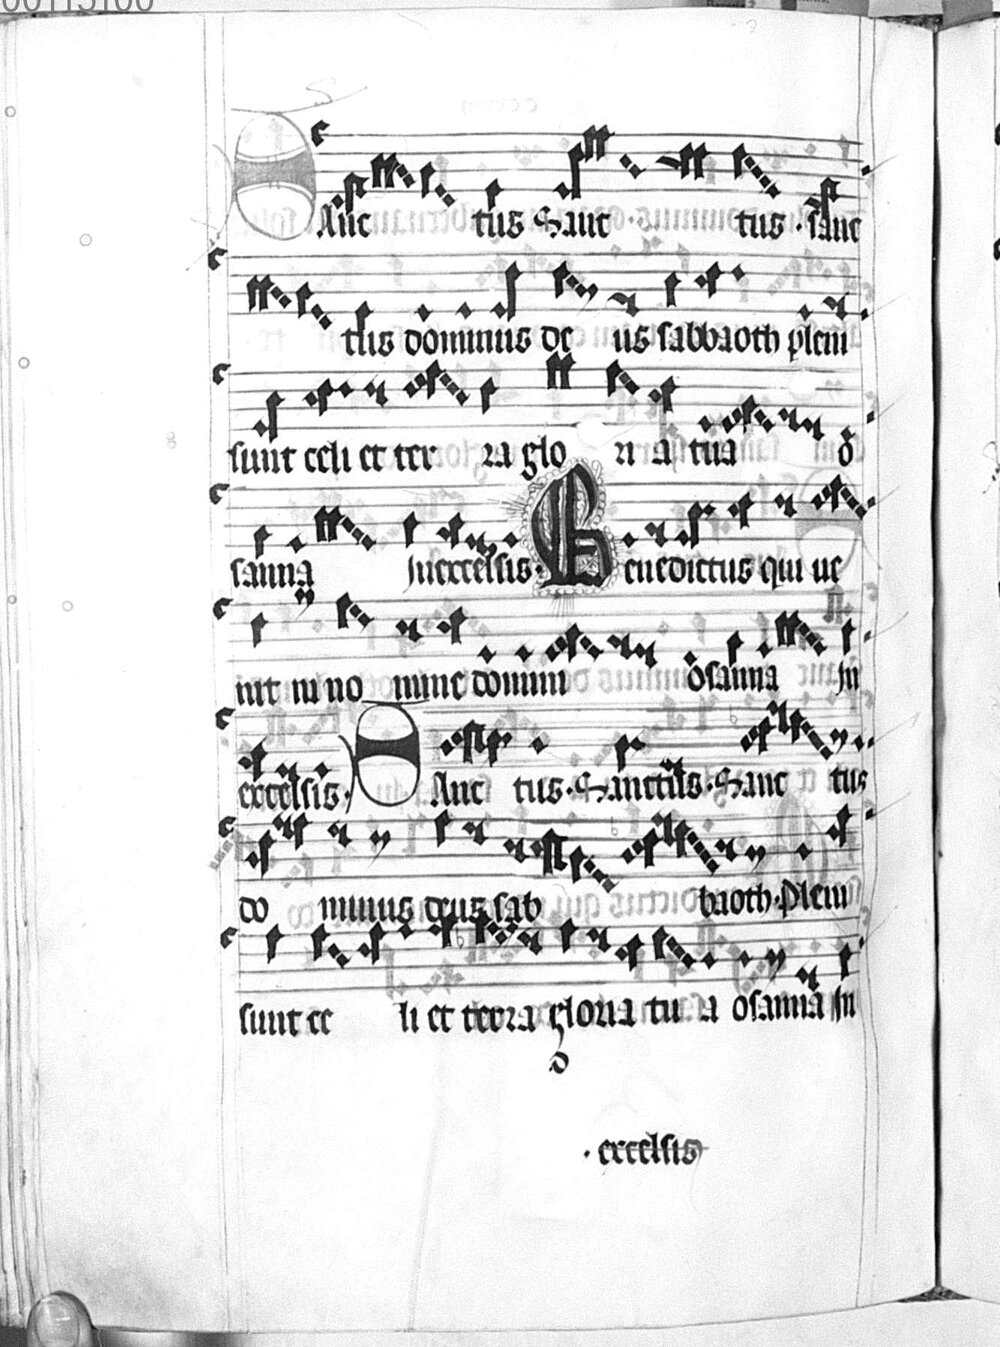 SAnc tus Sanc tus · sanc
tus dominus de us sabbaoth pleni
sunt celi et ter ra glo ri a tua o
sanna Inexcelsis · Benedictus qui ue
nit in no mine domini osanna In
excelsis · SAnc tus · Sanctus · Sanc tus
do minus deus sab baoth · Pleni
sunt ce li et terra gloria tu a osanna In
· excelsis